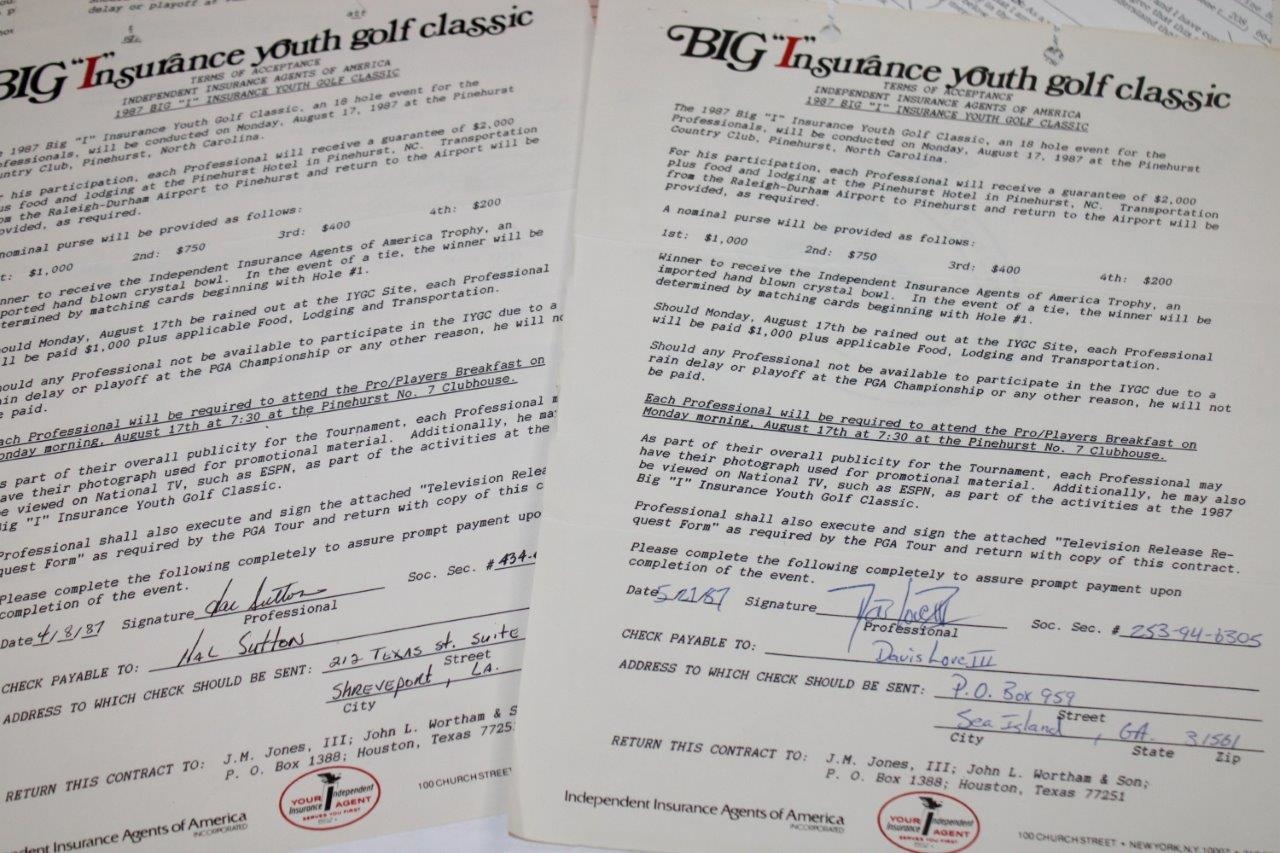 delay or playoff at
BIG "I"nsurance youth golf classic
TERMS OF ACCEPTANCE
INDEPENDENT INSURANCE AGENTS OF AMERICA
1987 BIG "I" INSURANCE YOUTH GOLF CLASSIC
1987 Big "I" Insurance Youth Golf Classic, an 18 hole event for the
ofessionals, will be conducted on Monday, August 17, 1987 at the Pinehurst
untry Club, Pinehurst, North Carolina.
r his participation, each Professional will receive a guarantee of $2,000
us food and lodging at the Pinehurst Hotel in Pinehurst, NC. Transportation
om the Raleigh-Durham Airport to Pinehurst and return to the Airport will be
ovided, as required.
nominal purse will be provided as follows:
t: $1,000 2nd: $750 3rd: $400 4th: $200
nner to receive the Independent Insurance Agents of America Trophy, an
ported hand blown crystal bowl. In the event of a tie, the winner will be
termined by matching cards beginning with Hole #1.
ould Monday, August 17th be rained out at the IYGC Site, each Professional
ll be paid $1,000 plus applicable Food, Lodging and Transportation.
ould any Professional not be available to participate in the IYGC due to a
in delay or playoff at the PGA Championship or any other reason, he will no
e paid.
ach Professional will be required to attend the Pro/Players Breakfast on
onday morning, August 17th at 7:30 at the Pinehurst No. 7 Clubhouse.
s part of their overall publicity for the Tournament, each Professional m
ave their photograph used for promotional material. Additionally, he ma
e viewed on National TV, such as ESPN, as part of the activities at the
ig "I" Insurance Youth Golf Classic.
Professional shall also execute and sign the attached "Television Relea
quest Form" as required by the PGA Tour and return with copy of this c
Please complete the following completely to assure prompt payment upo
completion of the event.
Date 4/8/87 Signature Hal Sutton Soc. Sec. # [redacted]
Professional
CHECK PAYABLE TO: HAL SUTTON
ADDRESS TO WHICH CHECK SHOULD BE SENT: 212 TEXAS St. SUITE
Street
SHREVEPORT, LA.
City
RETURN THIS CONTRACT TO: J.M. Jones, III; John L. Wortham & S
P. O. Box 1388; Houston, Texas 7725
dent Insurance Agents of America
INCORPORATED
YOUR Independent
Insurance AGENT
SERVES YOU FIRST
100 CHURCH STREET
BIG "I"nsurance youth golf classic
TERMS OF ACCEPTANCE
INDEPENDENT INSURANCE AGENTS OF AMERICA
1987 BIG "I" INSURANCE YOUTH GOLF CLASSIC
The 1987 Big "I" Insurance Youth Golf Classic, an 18 hole event for the
Professionals, will be conducted on Monday, August 17, 1987 at the Pinehurst
Country Club, Pinehurst, North Carolina.
For his participation, each Professional will receive a guarantee of $2,000
plus food and lodging at the Pinehurst Hotel in Pinehurst, NC. Transportation
from the Raleigh-Durham Airport to Pinehurst and return to the Airport will be
provided, as required.
A nominal purse will be provided as follows:
1st: $1,000 2nd: $750 3rd: $400 4th: $200
Winner to receive the Independent Insurance Agents of America Trophy, an
imported hand blown crystal bowl. In the event of a tie, the winner will be
determined by matching cards beginning with Hole #1.
Should Monday, August 17th be rained out at the IYGC Site, each Professional
will be paid $1,000 plus applicable Food, Lodging and Transportation.
Should any Professional not be available to participate in the IYGC due to a
rain delay or playoff at the PGA Championship or any other reason, he will not
be paid.
Each Professional will be required to attend the Pro/Players Breakfast on
Monday morning, August 17th at 7:30 at the Pinehurst No. 7 Clubhouse.
As part of their overall publicity for the Tournament, each Professional may
have their photograph used for promotional material. Additionally, he may also
be viewed on National TV, such as ESPN, as part of the activities at the 1987
Big "I" Insurance Youth Golf Classic.
Professional shall also execute and sign the attached "Television Release Re-
quest Form" as required by the PGA Tour and return with copy of this contract.
Please complete the following completely to assure prompt payment upon
completion of the event.
Date 5/21/87 Signature Davis Love III Soc. Sec. # [redacted]
Professional
CHECK PAYABLE TO: Davis Love III
ADDRESS TO WHICH CHECK SHOULD BE SENT: P.O. Box 959
Street
Sea Island, GA. 31561
City State Zip
RETURN THIS CONTRACT TO: J.M. Jones, III; John L. Wortham & Son;
P. O. Box 1388; Houston, Texas 77251
Independent Insurance Agents of America
INCORPORATED
YOUR Independent
Insurance AGENT
SERVES YOU FIRST
100 CHURCH STREET • NEW YORK, N.Y.